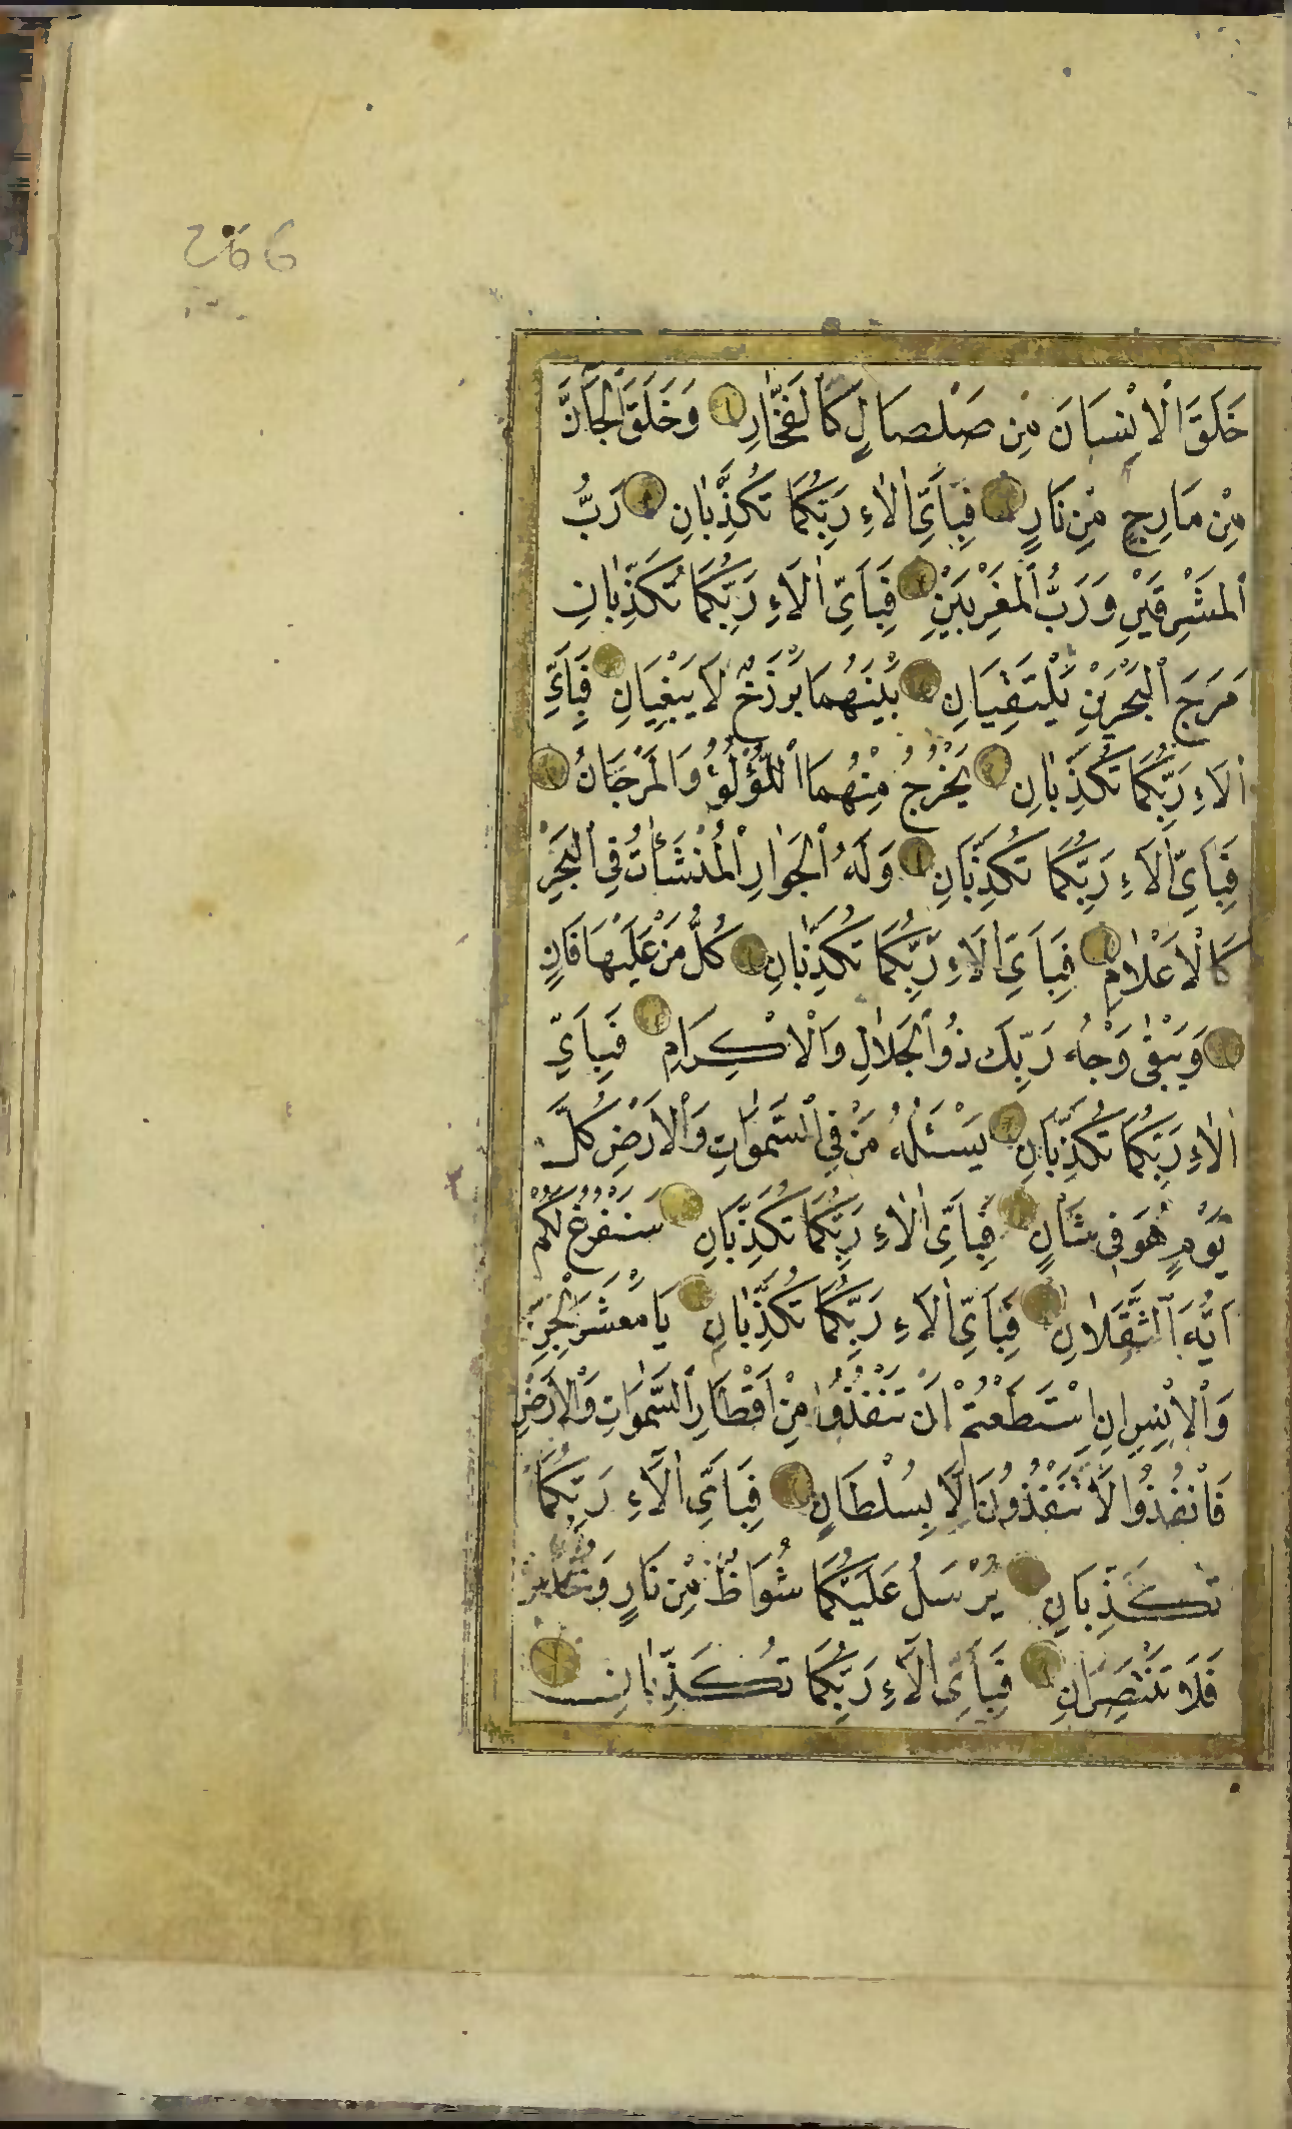 خَلَقَ الْاِنْسَانَ مِنْ صَلْصَالٍ كَالْفَخَّارِ وَخَلَقَ الْجَانَّ
مِنْ مَارِجٍ مِنْ نَارٍ فَبِاَىِّ اٰلَاءِ رَبِّكُمَا تُكَذِّبَانِ رَبُّ
الْمَشْرِقَيْنِ وَرَبُّ الْمَغْرِبَيْنِ فَبِاَىِّ اٰلَاءِ رَبِّكُمَا تُكَذِّبَانِ
مَرَجَ الْبَحْرَيْنِ يَلْتَقِيَانِ بَيْنَهُمَا بَرْزَخٌ لَا يَبْغِيَانِ فَبِاَىِّ
اٰلَاءِ رَبِّكُمَا تُكَذِّبَانِ يَخْرُجُ مِنْهُمَا اللُّؤْلُؤُ وَالْمَرْجَانُ
فَبِاَىِّ اٰلَاءِ رَبِّكُمَا تُكَذِّبَانِ وَلَهُ الْجَوَارِ الْمُنْشَاٰتُ فِي الْبَحْرِ
كَالْاَعْلَامِ فَبِاَىِّ اٰلَاءِ رَبِّكُمَا تُكَذِّبَانِ كُلُّ مَنْ عَلَيْهَا فَانٍ
وَيَبْقٰى وَجْهُ رَبِّكَ ذُو الْجَلَالِ وَالْاِكْرَامِ فَبِاَىِّ
اٰلَاءِ رَبِّكُمَا تُكَذِّبَانِ يَسْئَلُهُ مَنْ فِي السَّمٰوَاتِ وَالْاَرْضِ كُلَّ
يَوْمٍ هُوَ فِي شَاْنٍ فَبِاَىِّ اٰلَاءِ رَبِّكُمَا تُكَذِّبَانِ سَنَفْرُغُ لَكُمْ
اَيُّهَ الثَّقَلَانِ فَبِاَىِّ اٰلَاءِ رَبِّكُمَا تُكَذِّبَانِ يَا مَعْشَرَ الْجِنِّ
وَالْاِنْسِ اِنِ اسْتَطَعْتُمْ اَنْ تَنْفُذُوا مِنْ اَقْطَارِ السَّمٰوَاتِ وَالْاَرْضِ
فَانْفُذُوا لَا تَنْفُذُونَ اِلَّا بِسُلْطَانٍ فَبِاَىِّ اٰلَاءِ رَبِّكُمَا
تُكَذِّبَانِ يُرْسَلُ عَلَيْكُمَا شُوَاظٌ مِنْ نَارٍ وَنُحَاسٌ
فَلَا تَنْتَصِرَانِ فَبِاَىِّ اٰلَاءِ رَبِّكُمَا تُكَذِّبَانِ